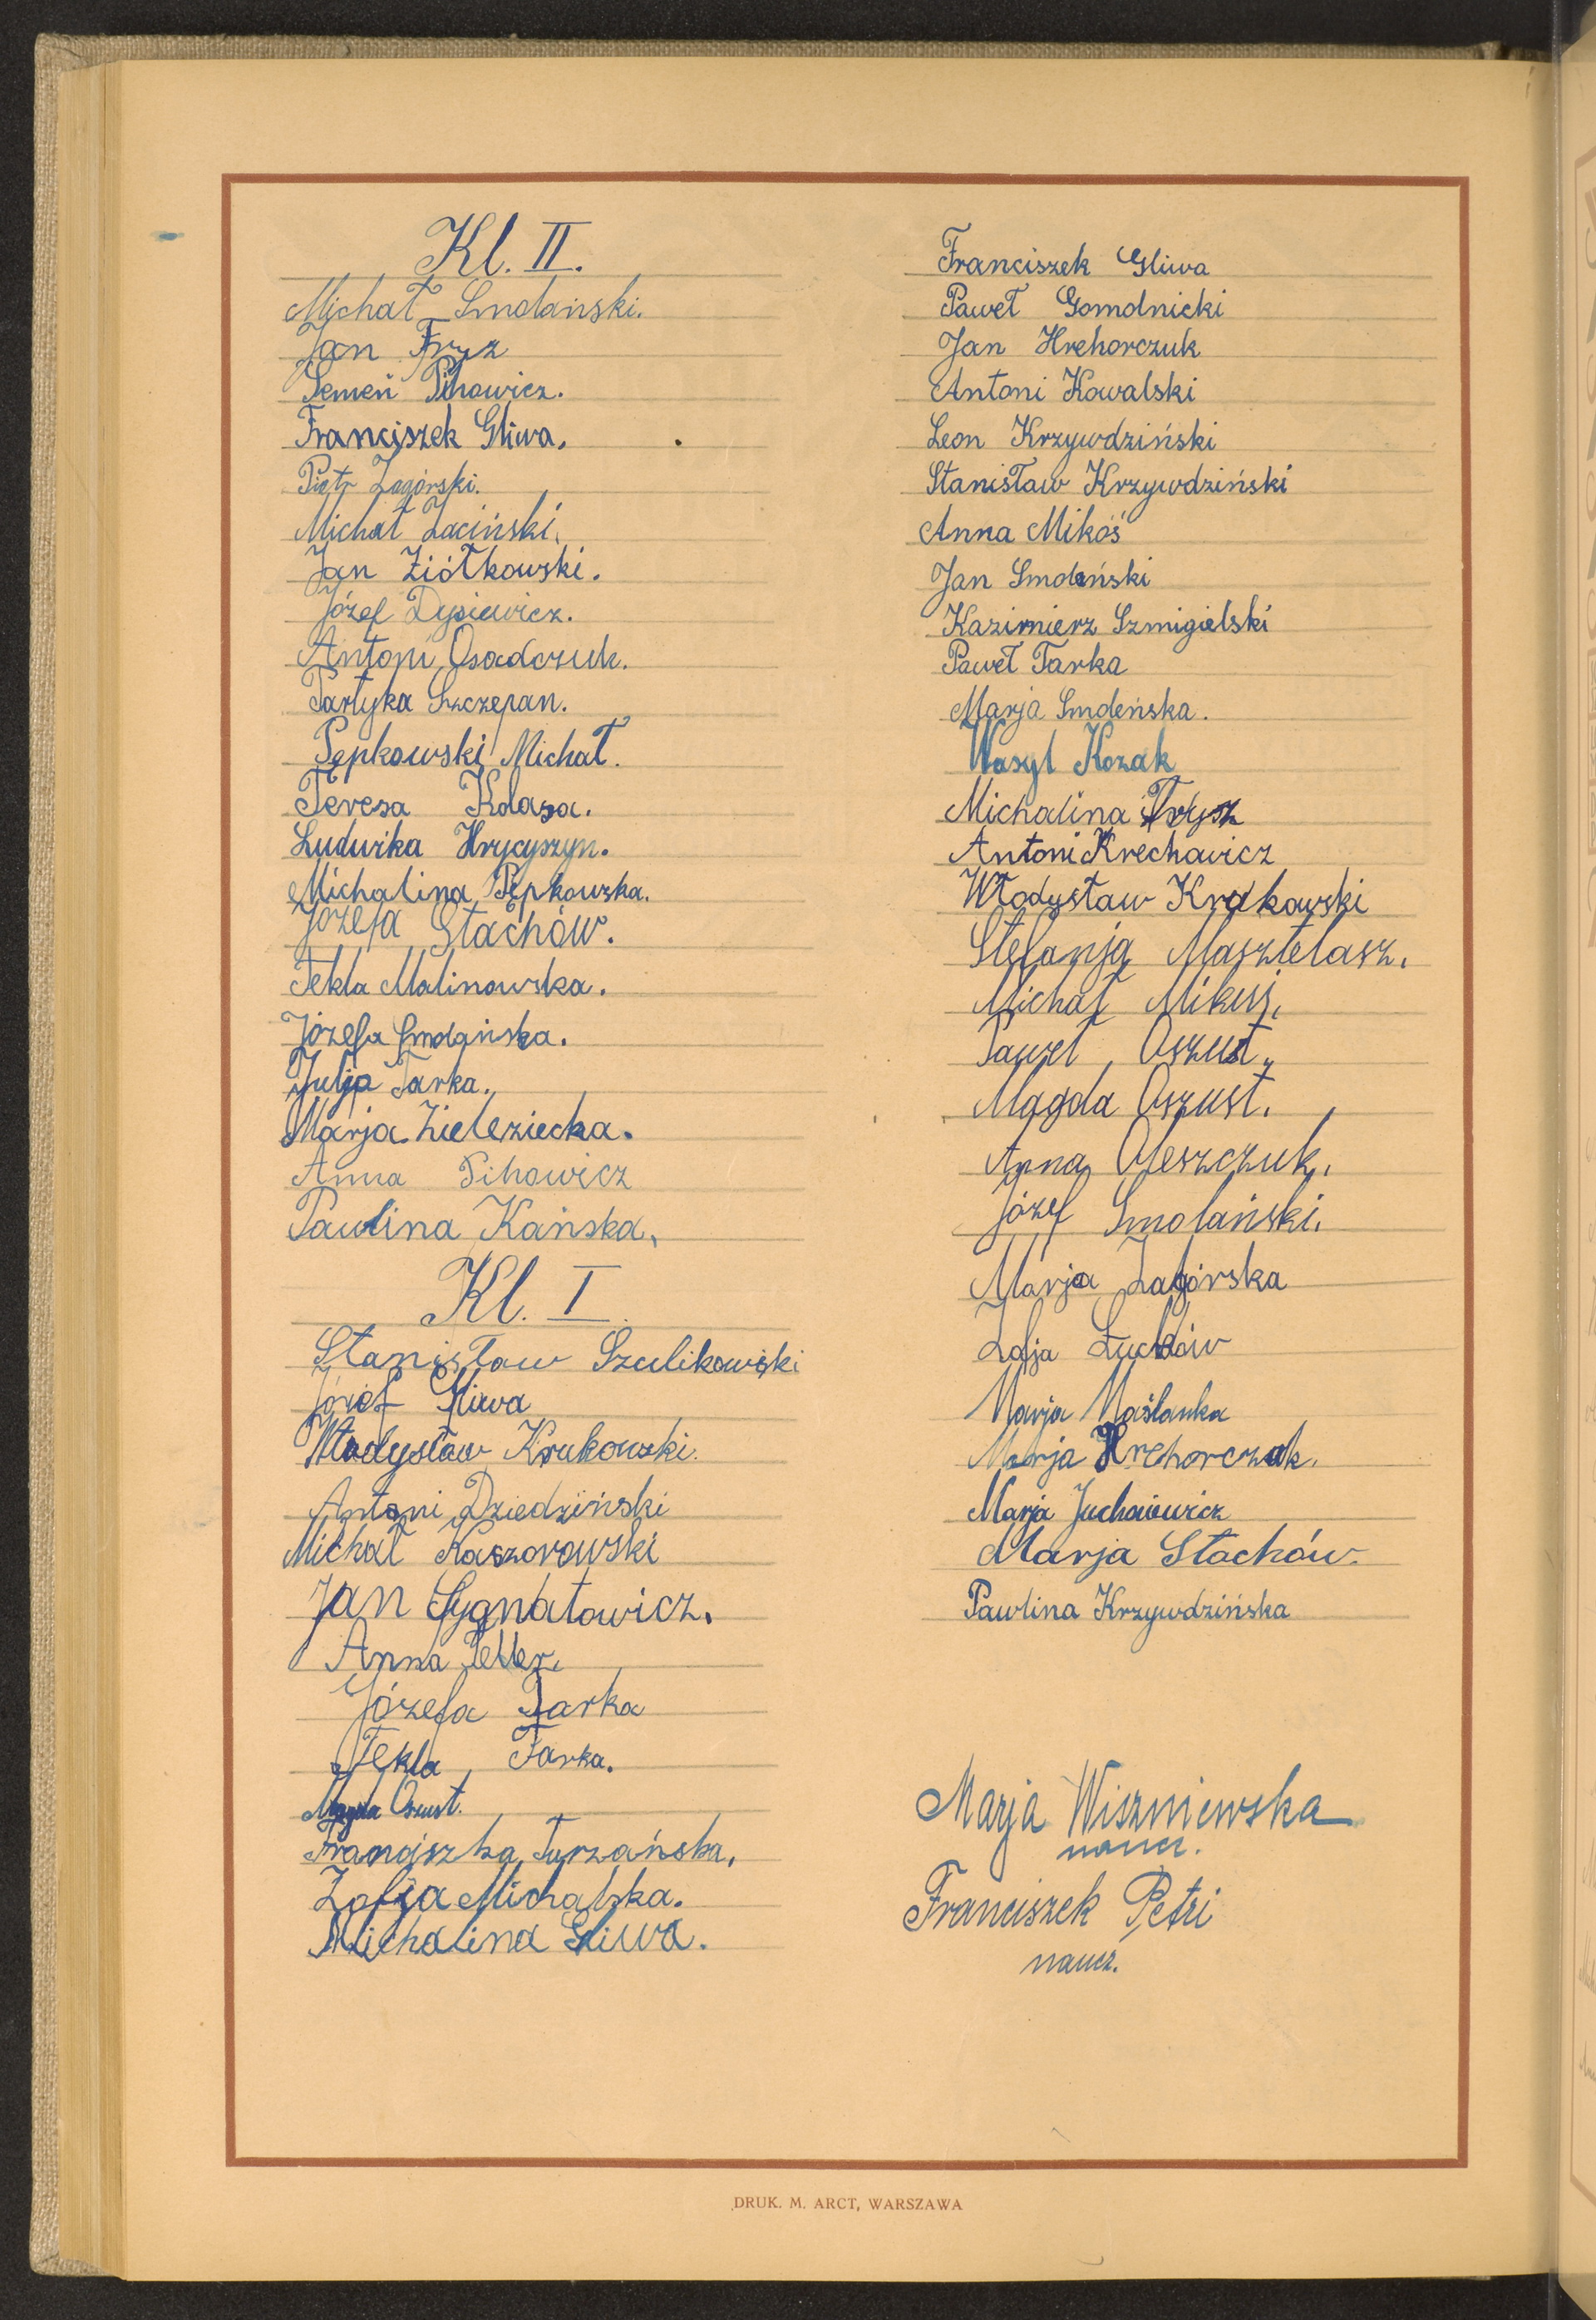 Kl. II.
Michał Smolański.
Jan Fryz
Semeń Pihowicz.
Franciszek Gliwa.
Piotr Zagórski.
Michał Zaciński.
Jan Ziółkowski.
Józef Dysiewicz.
Antoni Osadczuk.
Partyka Szczepan.
Pępkowski Michał.
Teresa Kolasa.
Ludwika Hrycyszyn.
Michalina Pępkowska.
Józefa Stachów.
Tekla Malinowska.
Józefa Smolańska.
Julja Tarka.
Marja Zieleziecka.
Anna Pihowicz
Paulina Kańska.
Kl. I.
Stanisław Szulikowski
Józef Gliwa
Władysław Krukowski.
Antoni Dziedziński
Michał Kaszorowski
Jan Sygnatowicz.
Anna Peller.
Józefa Tarka
Tekla Tarka.
Magda Oszust.
Franciszka Turzańska.
Zofja Michalska.
Michalina Gliwa.
Franciszek Gliwa
Paweł Gomolnicki
Jan Hrehorczuk
Antoni Kowalski
Leon Krzywdziński
Stanisław Krzywdziński
Anna Mikoś
Jan Smoleński
Kazimierz Szmigielski
Paweł Tarka
Marja Smoleńska.
Wasyl Kozak
Michalina
Antoni Krechowicz
Włodysław Krakowski
Stefanja Masztelasz.
Michał Mikuś.
Paweł Oszust.
Magda Oszust.
Anna Oleszczuk.
Józef Smolański.
Marja Zagórska
Zofja Łuckow
Marja Maślanka
Marja Hrehorczuk.
Marja Juchniewicz
Marja Stachów.
Paulina Krzywdzińska
Marja Wiszniewska
naucz.
Franciszek Petri
naucz.
DRUK. M. ARCT, WARSZAWA